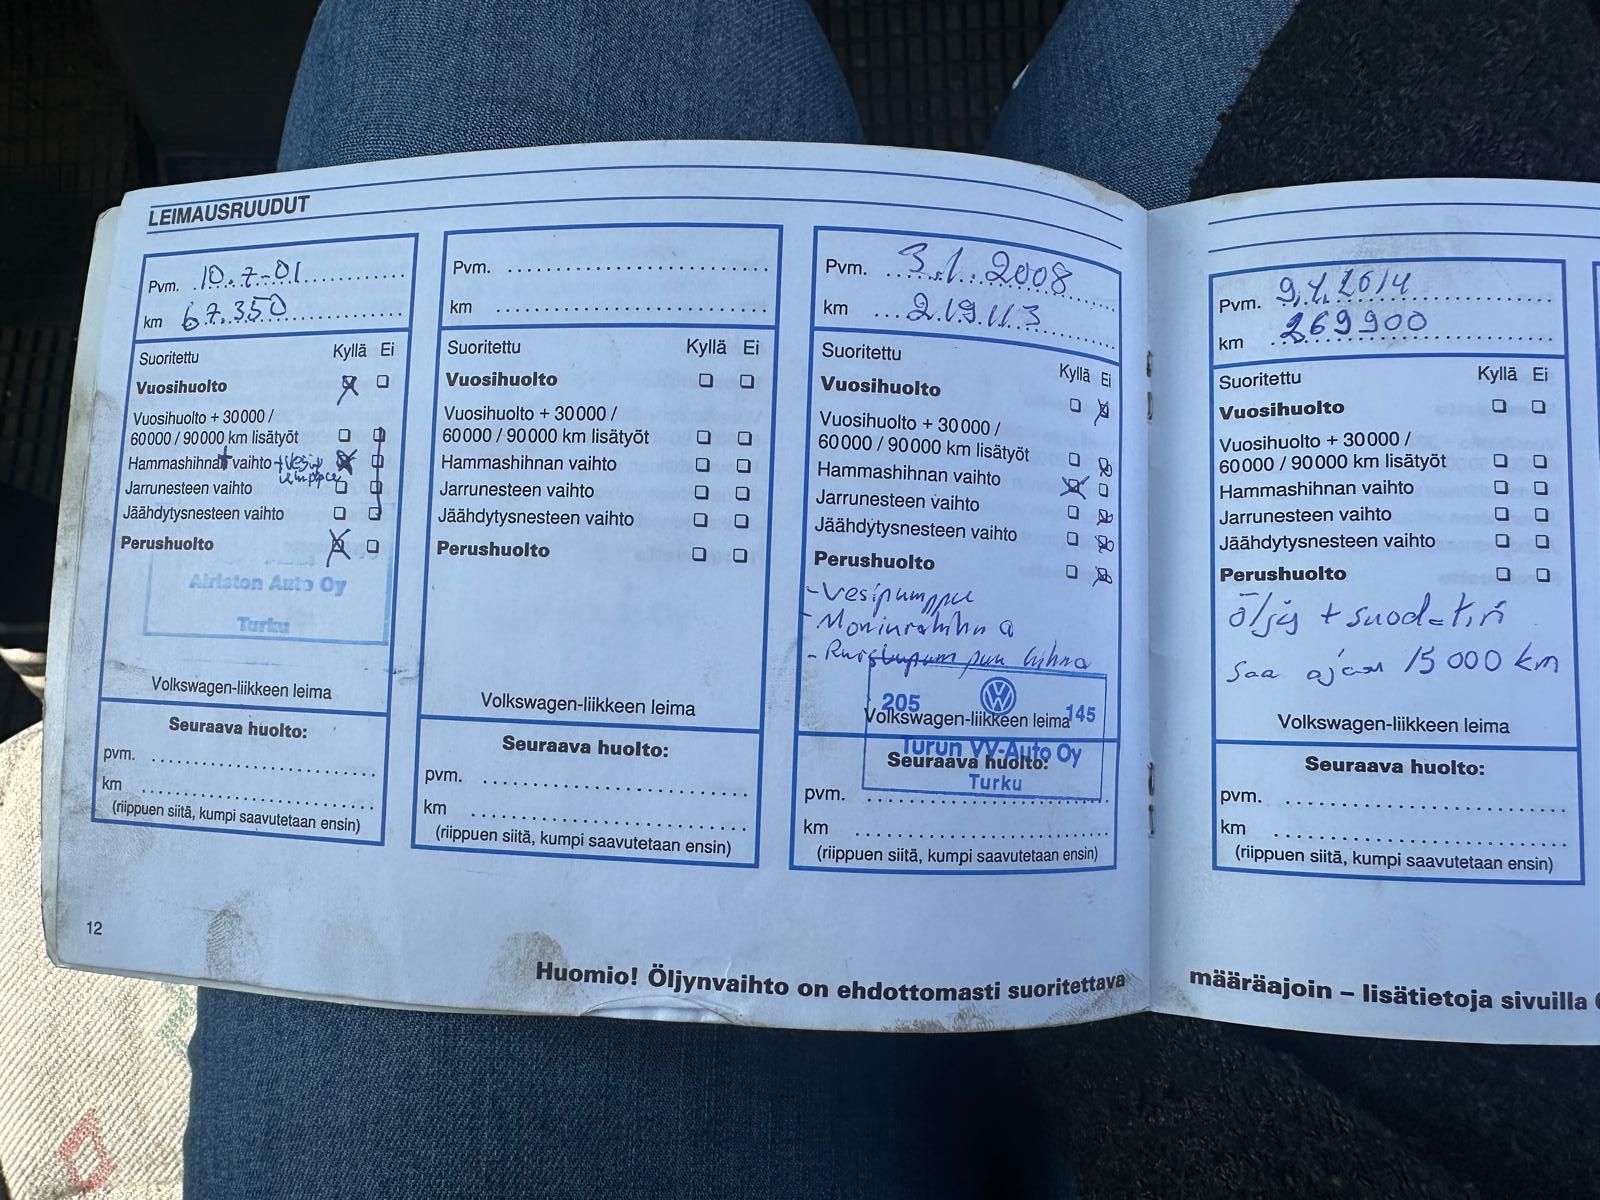 LEIMAUSRUUDUT
Pvm. 10.7-01
km 67.350
Suoritettu Kyllä Ei
Vuosihuolto
Vuosihuolto + 30 000 /
60 000 / 90 000 km lisätyöt
Hammashihnat vaihto + vesip
umppu
Jarrunesteen vaihto
Jäähdytysnesteen vaihto
Perushuolto
Airiston Auto Oy
Turku
Volkswagen-liikkeen leima
Seuraava huolto:
pvm.
km
(riippuen siitä, kumpi saavutetaan ensin)
Pvm.
km
Suoritettu Kyllä Ei
Vuosihuolto
Vuosihuolto + 30 000 /
60 000 / 90 000 km lisätyöt
Hammashihnan vaihto
Jarrunesteen vaihto
Jäähdytysnesteen vaihto
Perushuolto
Volkswagen-liikkeen leima
Seuraava huolto:
pvm.
km
(riippuen siitä, kumpi saavutetaan ensin)
Pvm. 3.1.2008
km 219113
Suoritettu Kyllä Ei
Vuosihuolto
Vuosihuolto + 30 000 /
60 000 / 90 000 km lisätyöt
Hammashihnan vaihto
Jarrunesteen vaihto
Jäähdytysnesteen vaihto
Perushuolto
- Vesipumppu
- Moniurahihna
- hihna
205 145
Volkswagen-liikkeen leima
Turun VV-Auto Oy
Seuraava huolto:
Turku
pvm.
km
(riippuen siitä, kumpi saavutetaan ensin)
12
Huomio! Öljynvaihto on ehdottomasti suoritettava
Pvm. 9.4.2014
km 269900
Suoritettu Kyllä Ei
Vuosihuolto
Vuosihuolto + 30 000 /
60 000 / 90 000 km lisätyöt
Hammashihnan vaihto
Jarrunesteen vaihto
Jäähdytysnesteen vaihto
Perushuolto
öljy + suod.
saa ajaa 15 000 km
Volkswagen-liikkeen leima
Seuraava huolto:
pvm.
km
(riippuen siitä, kumpi saavutetaan ensin)
määräajoin – lisätietoja sivuilla